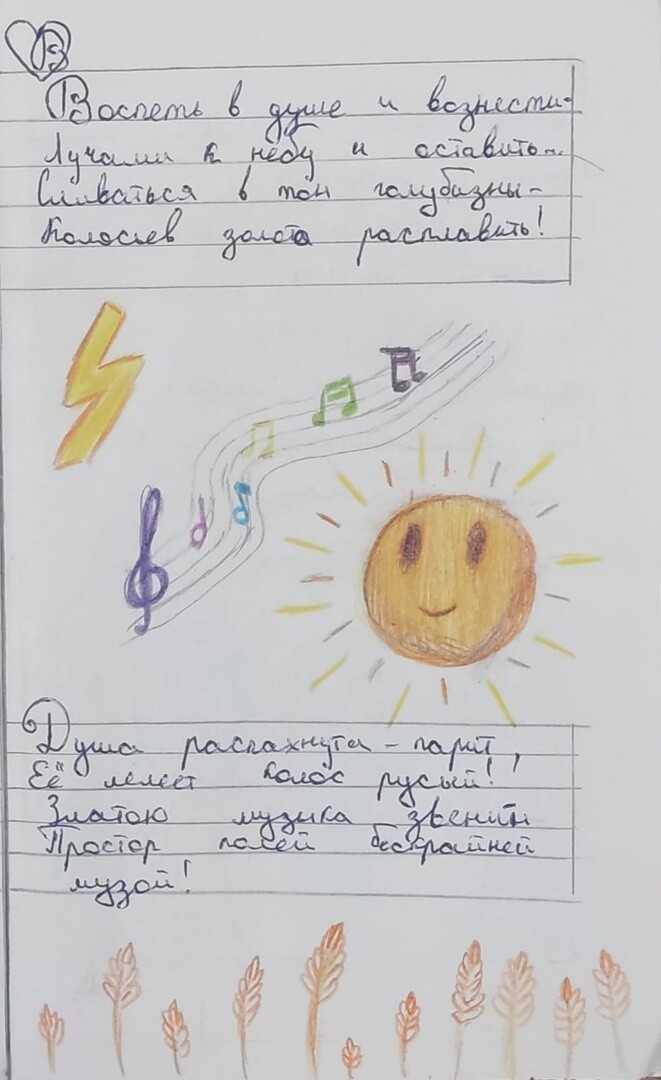 В
Воспеть в душе и вознести-
Лучами к небу и оставить...
Сливаться в тон голубизны-
Колосьев золота расплавить!
Душа распахнута - парит,
Её лелеет колос русый!
Златою музыка звенит
Простор полей бескрайней
музой!